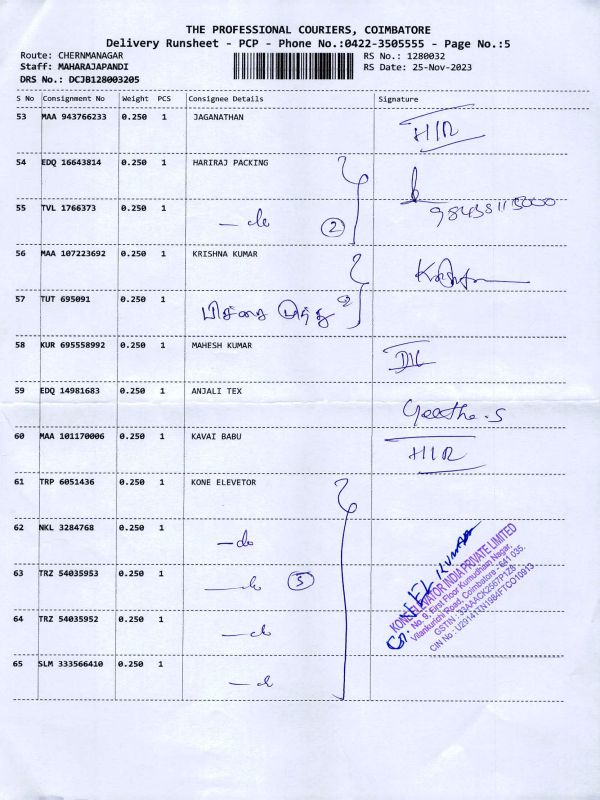 THE PROFESSIONAL COURIERS, COIMBATORE
Delivery Runsheet - PCP - Phone No.:0422-3505555 - Page No.:5
Route: CHERNMANAGAR RS No.: 1280032
Staff: MAHARAJAPANDI RS Date: 25-Nov-2023
DRS No.: DCJB128003205
S No Consignment No Weight PCS Consignee Details Signature
53 MAA 943766233 0.250 1 JAGANATHAN H/R
54 EDQ 16643814 0.250 1 HARIRAJ PACKING
55 TVL 1766373 0.250 1 - do 2
56 MAA 107223692 0.250 1 KRISHNA KUMAR
57 TUT 695091 0.250 1 பிச்சை முத்து
58 KUR 695558992 0.250 1 MAHESH KUMAR
59 EDQ 14981683 0.250 1 ANJALI TEX Geetha.S
60 MAA 101170006 0.250 1 KAVAI BABU H/R
61 TRP 6051436 0.250 1 KONE ELEVETOR
62 NKL 3284768 0.250 1 -do
63 TRZ 54035953 0.250 1 -do 5
64 TRZ 54035952 0.250 1 -do
65 SLM 333566410 0.250 1 -do
KONE ELEVATOR INDIA PRIVATE LIMITED
No. 9, First Floor Kumudham Nagar,
Vilankurichi Road, Coimbatore - 641 035.
GSTIN : 33AAACK2567P1Z8
CIN No : U29141TN1984FTC010913